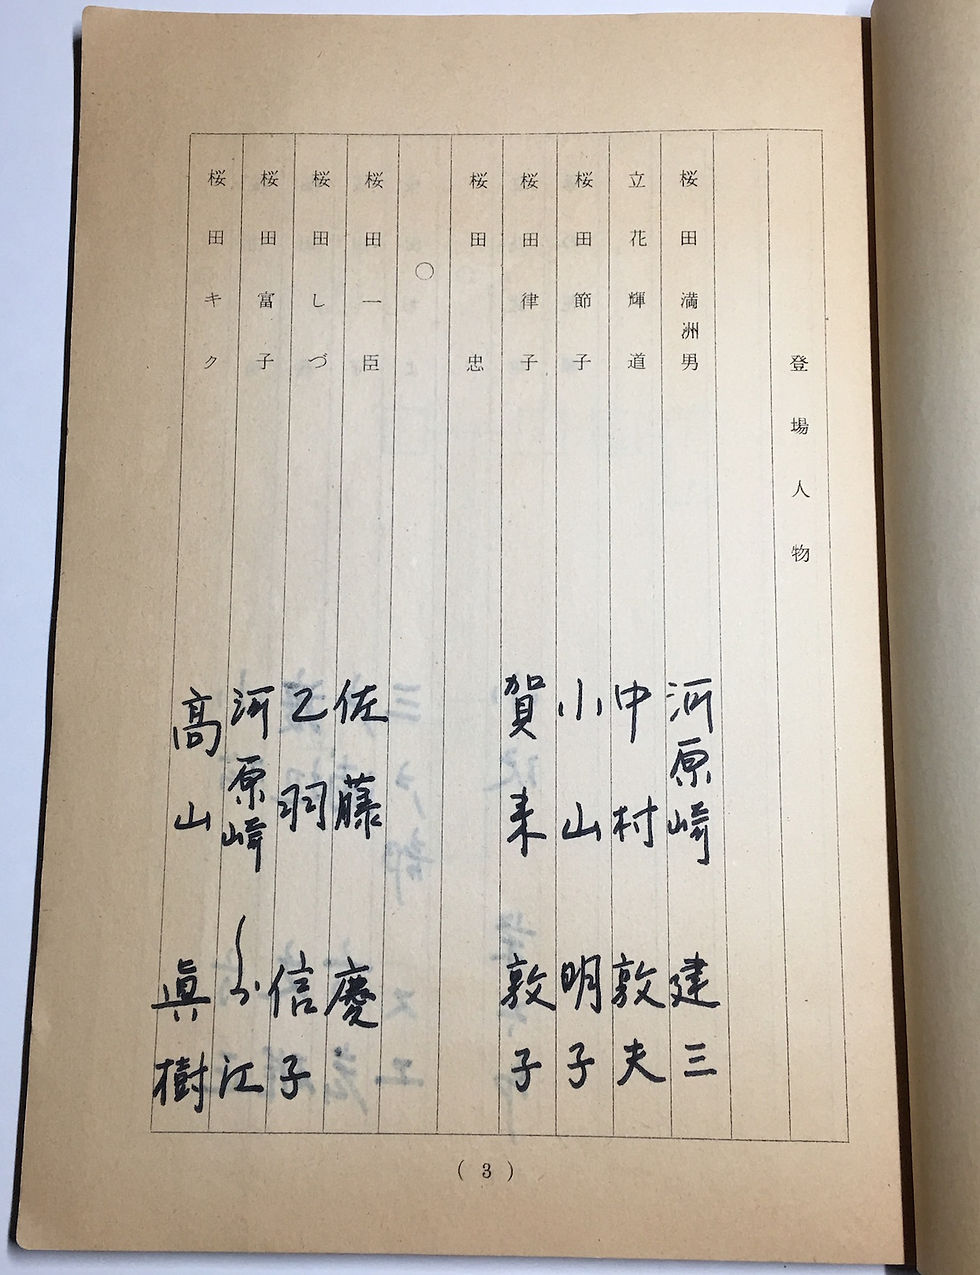 登場人物
桜田満洲男 河原崎建三
立花輝道 中村敦夫
桜田節子 小山明子
桜田律子 賀来敦子
桜田忠
○
桜田一臣 佐藤慶
桜田しづ 乙羽信子
桜田富子 河原崎しづ江
桜田キク 高山眞樹
(3)